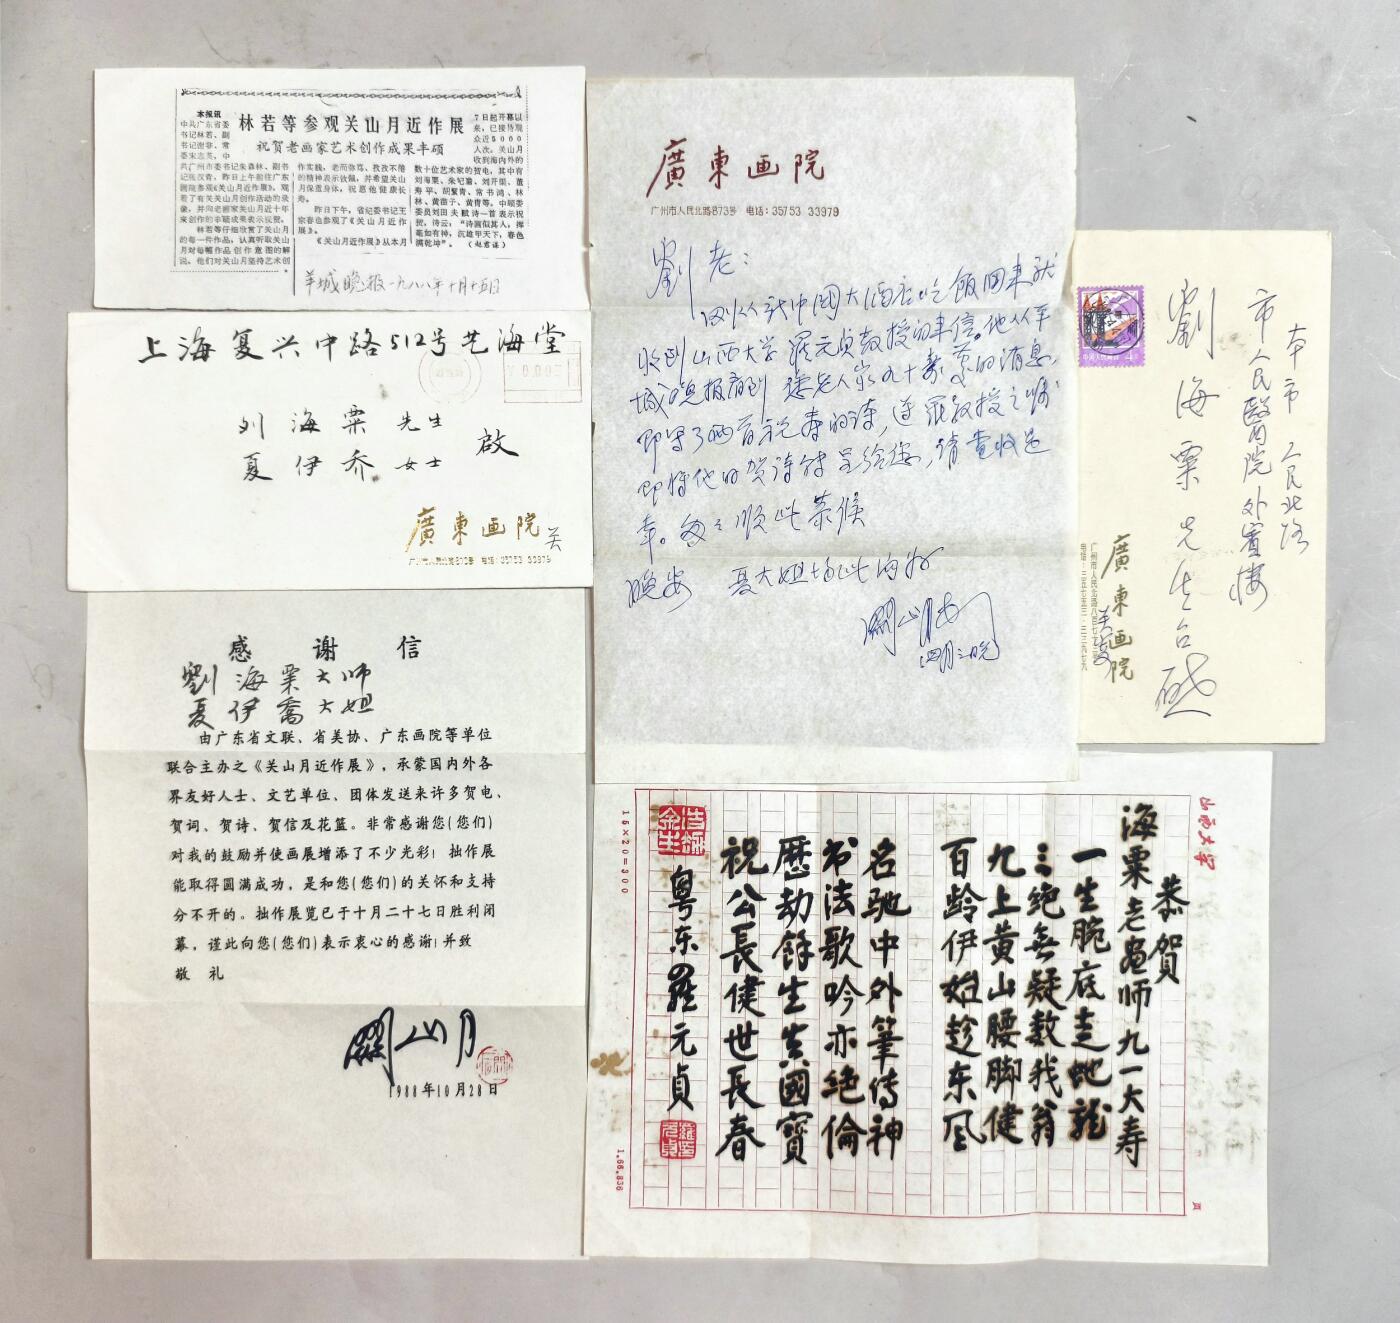 本报讯
中共广东省委
书记林若、副
书记谢非、常
委宋志英，中
共广州市委书记朱森林、副书
记张汉青，昨日上午前往广东
画院参观《关山月近作展》，观
看了有关关山月创作活动的录
像，并向老画家关山月近十年
来创作的丰硕成果表示祝贺。
林若等仔细欣赏了关山月
的每一件作品，认真听取关山
月对每幅作品创作意图的解
说。他们对关山月坚持艺术创
林若等参观关山月近作展
祝贺老画家艺术创作成果丰硕
作实践，老而弥笃、孜孜不倦
的精神表示钦佩，并希望关山
月保重身体，祝愿他健康长
寿。
昨日下午，省纪委书记王
宗春也参观了《关山月近作
展》。
《关山月近作展》从本月
7日起开幕以
来，已接待观
众近5000
人次。关山月
收到海内外的
数十位艺术家的贺电，其中有
刘海粟、朱屺瞻、刘开渠、董
寿平、胡絜青、常书鸿、林
林、黄苗子、黄胄等。中顾委
委员刘田夫赋诗一首表示祝
贺，诗云：“诗画似其人，挥
毫如有神，沉雄甲天下，春色
满乾坤”。
羊城晚报一九八八年十月十五日
上海复兴中路512号艺海堂
刘海粟先生
夏伊乔女士
啟
廣東画院 关
广州市人民北路873号 电话：35753 33979
感谢信
劉海粟大师
夏伊喬大姐
由广东省文联、省美协、广东画院等单位
联合主办之《关山月近作展》，承蒙国内外各
界友好人士、文艺单位、团体发送来许多贺电、
贺词、贺诗、贺信及花篮。非常感谢您(您们)
对我的鼓励并使画展增添了不少光彩！拙作展
能取得圆满成功，是和您(您们)的关怀和支持
分不开的。拙作展览已于十月二十七日胜利闭
幕，谨此向您(您们)表示衷心的感谢！并致
敬礼
關山月
1988年10月28日
廣東画院
广州市人民北路873号 电话：35753 33979
劉老：
中国大酒店吃飯回来就
收到山西大学羅元貞教授的来信。他从羊
城晚报看到您老人家九十寿慶的消息，
即写了两首祝寿的诗，遵羅教授之嘱
即将他的贺诗转呈给您，请查收是
幸。匆匆顺此恭候
晚安 夏大姐均此问好
關山月
四月三晚
中国人民邮政
本市人民北路
市人民醫院外賓楼
劉海粟先生台啟
廣東画院
山西大学
15×20=300
恭賀
海粟老畫师九一大寿
一生腕底走蛇龍
三绝無疑数我翁
九上黄山腰脚健
百龄伊始趁东风
名驰中外筆传神
书法歌吟亦绝倫
歷劫餘生真國寶
祝公長健世長春
粤东羅元貞
1.66.836
页